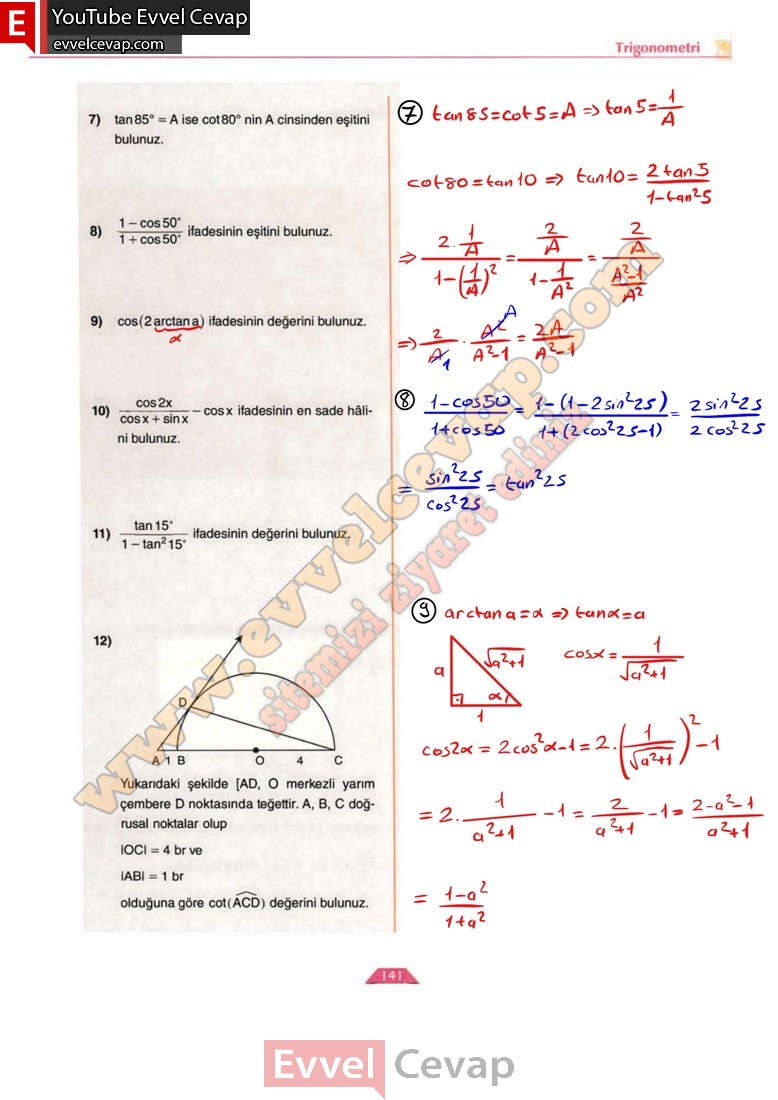 E YouTube Evvel Cevap
evvelcevap.com
Trigonometri
7) tan 85° = A ise cot 80° nin A cinsinden eşitini
bulunuz.
8) (1 − cos 50°)/(1 + cos 50°) ifadesinin eşitini bulunuz.
9) cos(2 arctan a) ifadesinin değerini bulunuz.
α
10) cos 2x/(cos x + sin x) − cos x ifadesinin en sade hâli-
ni bulunuz.
11) tan 15°/(1 − tan² 15°) ifadesinin değerini bulunuz.
12)
D
A 1 B O 4 C
Yukarıdaki şekilde [AD, O merkezli yarım
çembere D noktasında teğettir. A, B, C doğ-
rusal noktalar olup
IOCI = 4 br ve
IABI = 1 br
olduğuna göre cot(ACD) değerini bulunuz.
7 tan85=cot5=A ⇒ tan5=1/A
cot80=tan10 ⇒ tan10= 2tan5/(1-tan²5)
⇒ (2·1/A)/(1-(1/A)²) = (2/A)/(1-1/A²) = (2/A)/((A²-1)/A²)
⇒ 2/A · A²/(A²-1) = 2A/(A²-1)
A
1
8 (1-cos50)/(1+cos50) = (1-(1-2sin²25))/(1+(2cos²25-1)) = 2sin²25/2cos²25
= sin²25/cos²25 = tan²25
9 arctana=α ⇒ tanα=a
a √a²+1 α 1
cosα = 1/√a²+1
cos2α = 2cos²α-1 = 2·(1/√a²+1)²-1
= 2·1/(a²+1) -1 = 2/(a²+1) -1 = (2-a²-1)/(a²+1)
= (1-a²)/(1+a²)
www.evvelcevap.com
sitemizi ziyaret ediniz
141
Evvel Cevap